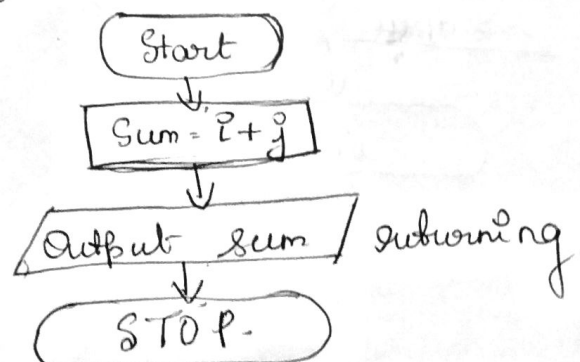 Start
Sum = i + j
Output sum returning
STOP.